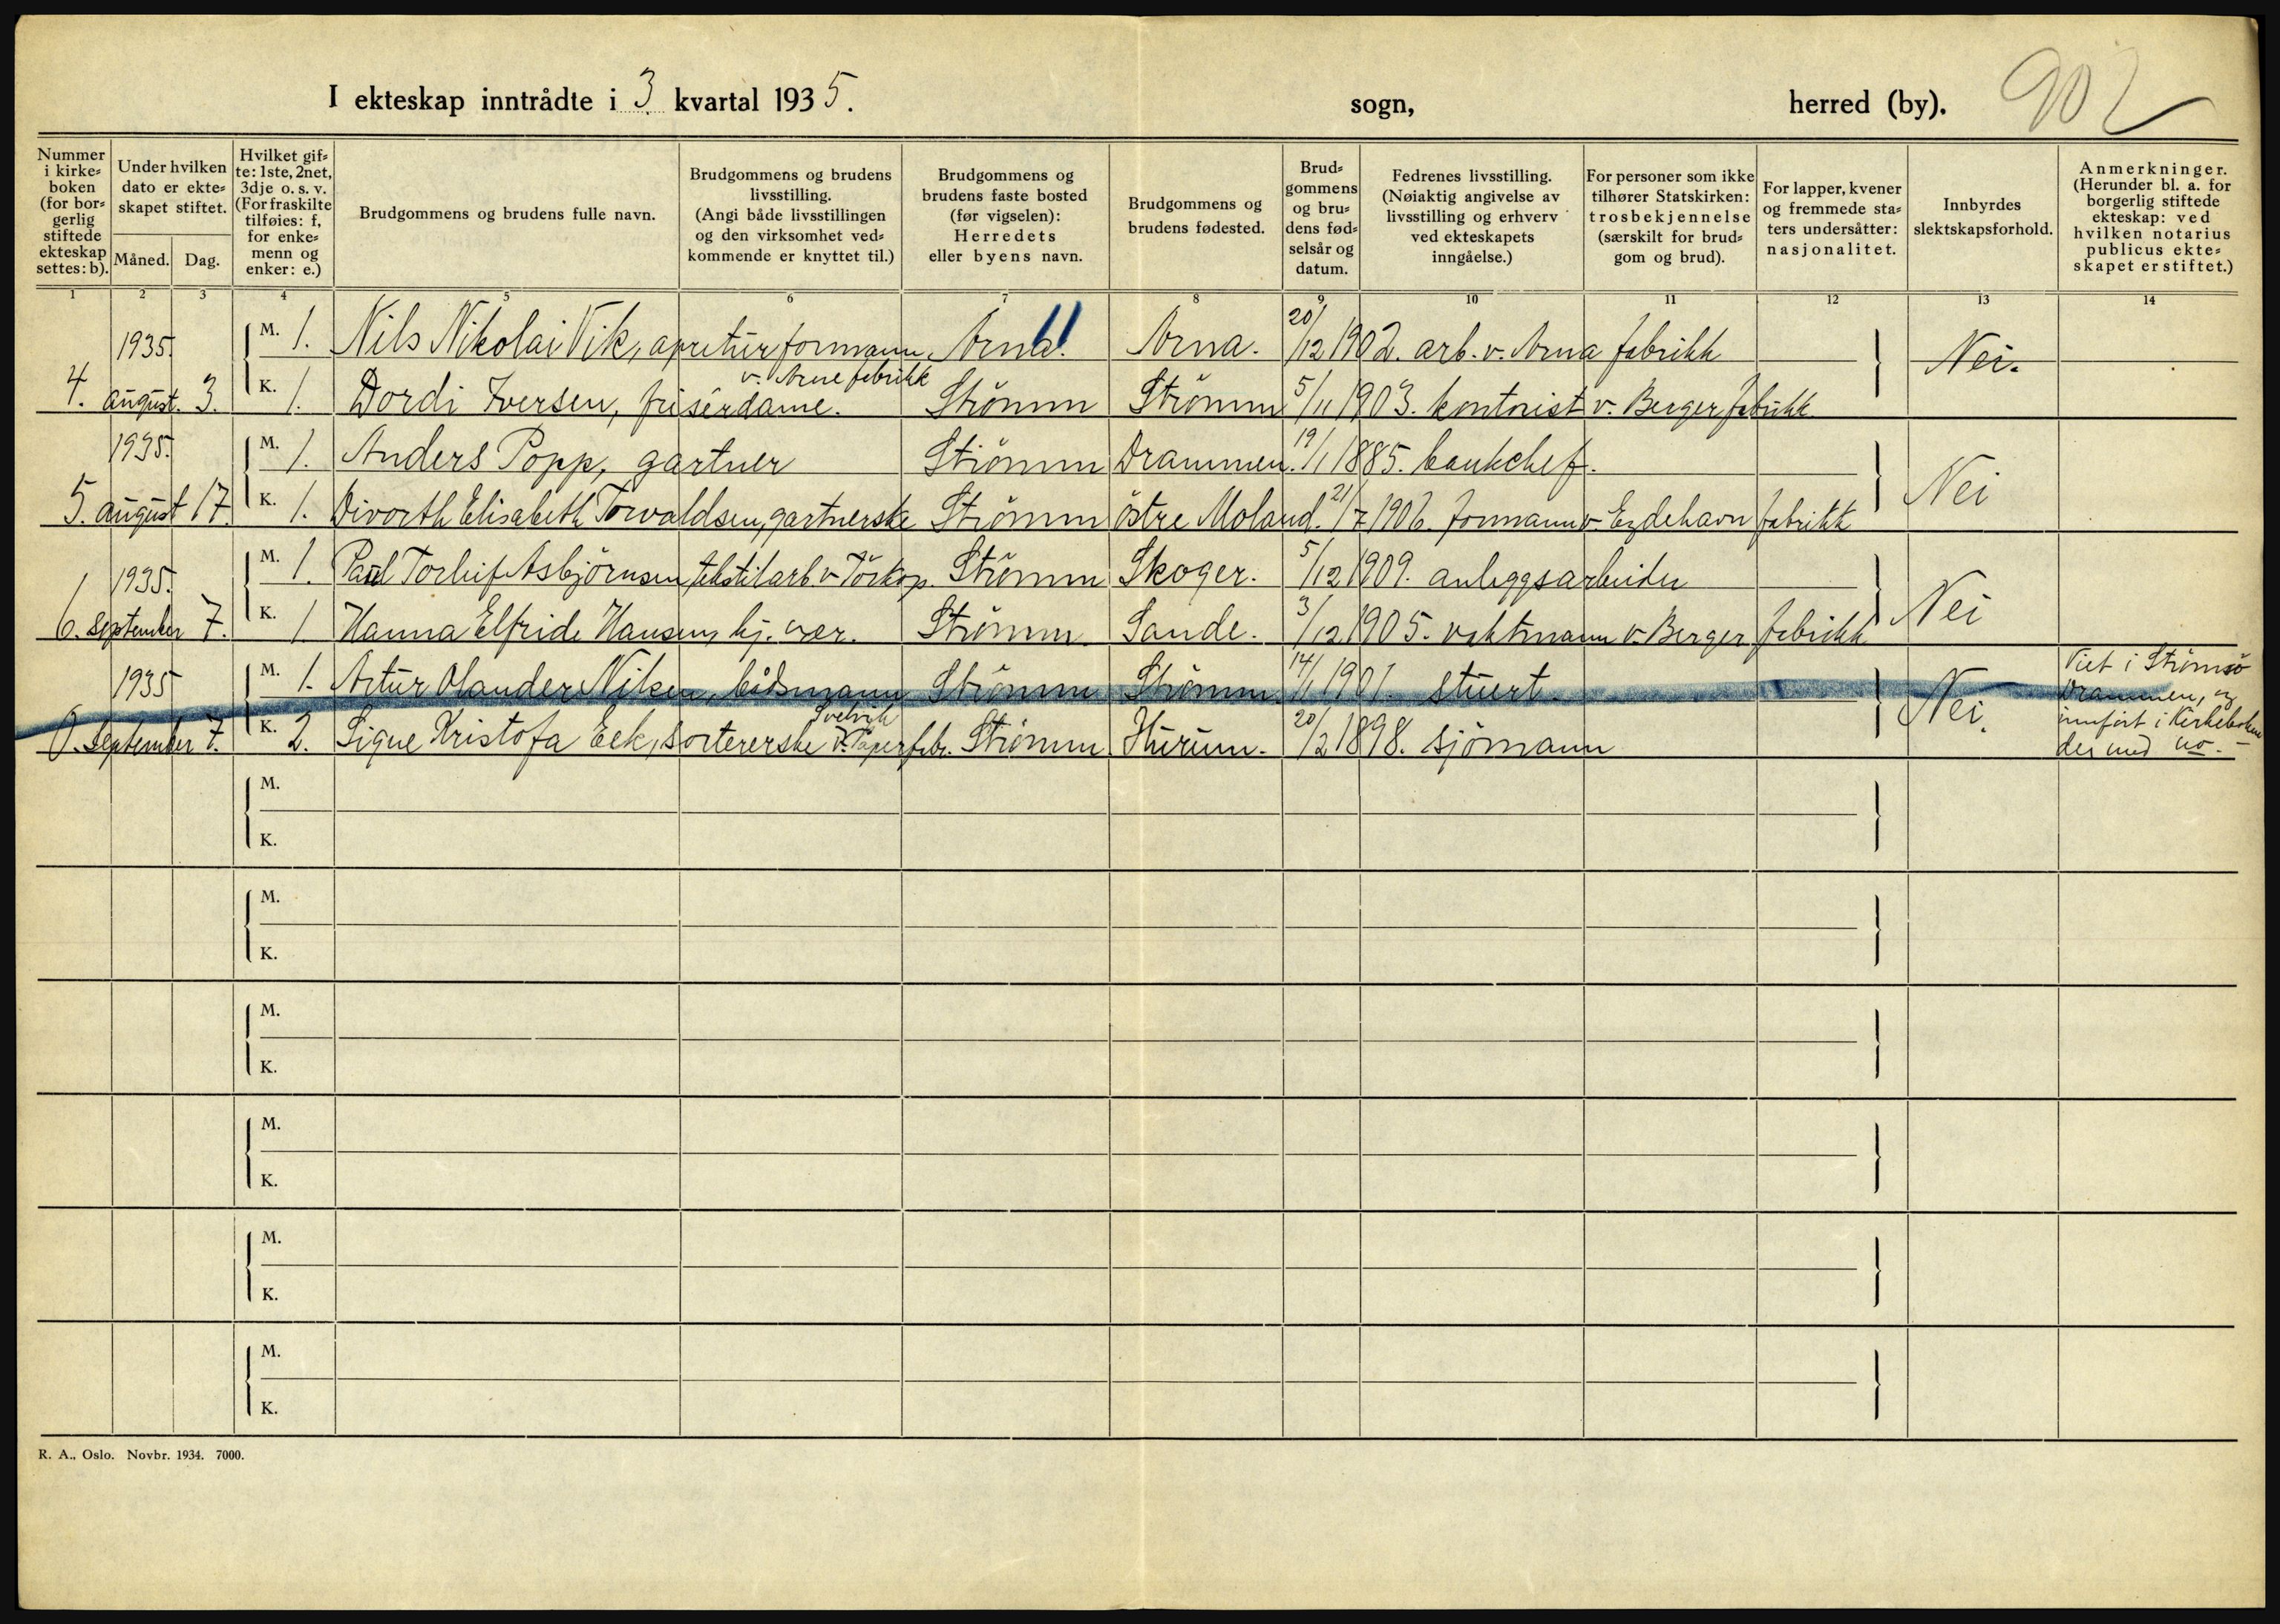 I ekteskap inntrådte i 3 kvartal 1935. sogn, herred (by). 902
Nummer i kirke= boken (for bor= gerlig stiftede ekteskap settes: b).
Under hvilken dato er ekte= skapet stiftet.
Måned. Dag.
Hvilket gif= te: 1ste, 2net, 3dje o. s. v. (For fraskilte tilføies: f, for enke= menn og enker: e.)
Brudgommens og brudens fulle navn.
Brudgommens og brudens livsstilling. (Angi både livsstillingen og den virksomhet ved= kommende er knyttet til.)
Brudgommens og brudens faste bosted (før vigselen): Herredets eller byens navn.
Brudgommens og brudens fødested.
Brud= gommens og bru= dens fød= selsår og datum.
Fedrenes livsstilling. (Nøiaktig angivelse av livsstilling og erhverv ved ekteskapets inngåelse.)
For personer som ikke tilhører Statskirken: trosbekjennelse (særskilt for brud= gom og brud).
For lapper, kvener og fremmede sta= ters undersåtter: nasjonalitet.
Innbyrdes slektskapsforhold.
Anmerkninger. (Herunder bl. a. for borgerlig stiftede ekteskap: ved hvilken notarius publicus ekte= skapet er stiftet.)
1 2 3 4 5 6 7 8 9 10 11 12 13 14
1935. M. 1. Nils Nikolai Vik, apretürformann v. Arne fabrikk Arna. Arna. 20/12 1902. arb. v. Arna fabrikk Nei.
4. august. 3. K. 1. Dordi Iversen, frisérdame. Strömm Strömm 5/11 1903. kontorist v. Berger fabrikk
1935. M. 1. Anders Popp, gartner Strömm Drammen. 19/1 1885. bankchef. Nei
5. august 17. K. 1. Divorth Elisabeth Torvaldsen, gartnerske Strömm östre Moland. 21/7 1906. formann v. Eydehavn fabrikk
1935. M. 1. Paul Torleif Asbjörnsen, tekstilarb. v. Törkop. Strömm Skoger. 5/12 1909. anleggsarbeider Nei
6. september 7. K. 1 Hanna Elfride Hansen, hj. vær. Strömm Sande. 3/12 1905. vaktmann v. Berger fabrikk
1935 M. 1. Artur Olander Nilsen, båtsmann Strömm Strömm 14/1 1901. stuert. Nei. Viet i Strömsö
Drammen, og
0. September 7. K. 2. Signe Kristofa Eek, sortererske v. Svelvik Papirfabr. Strömm Hurum. 20/2 1898. sjömann innfört i Kirkeboken
der med no. —
M.
K.
M.
K.
M.
K.
M.
K.
M.
K.
M.
K.
R. A., Oslo. Novbr. 1934. 7000.